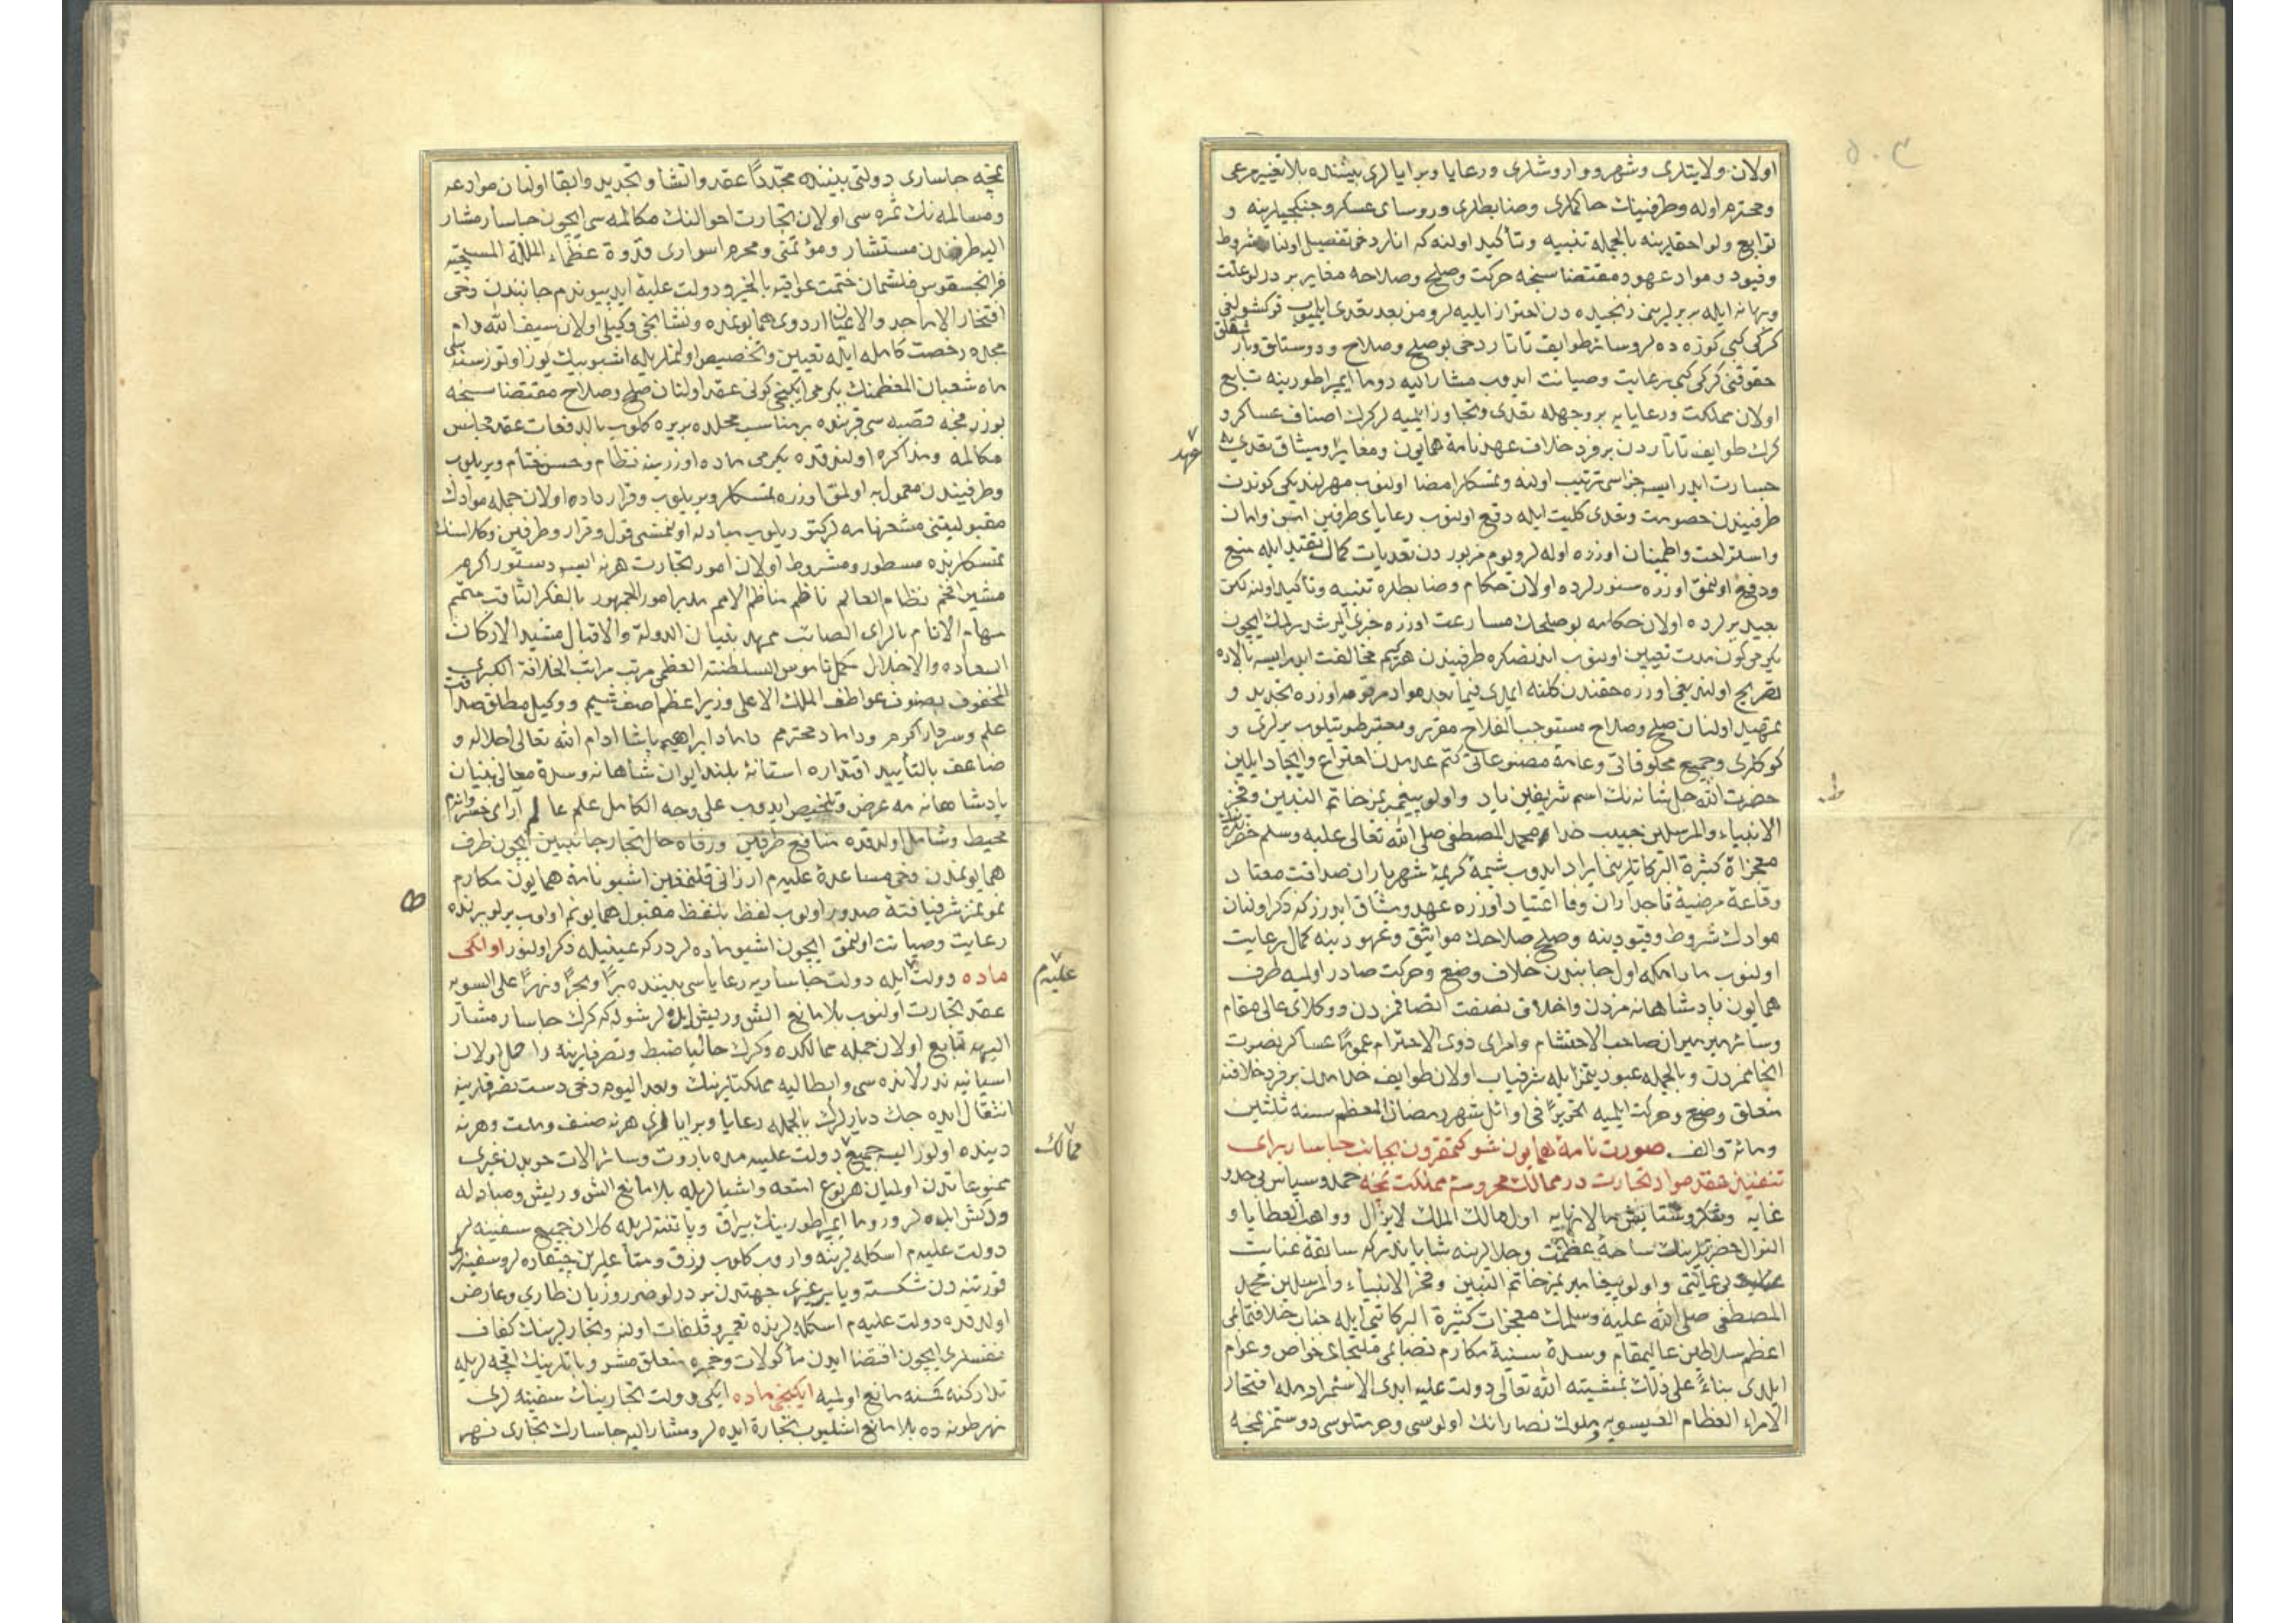 اولان ولايتلرى وشهر وواروشلرى ورعايا وبرايالرى بيننده بلا تغيير مرعى
ومحترم اوله وطرفينك حاكملرى وضابطلرى وروساى عسكر وجنكجيلرينه و
توابع ولواحقلرينه بالجمله تنبيه وتأكيد اولنه كه انلر دخى تفصيل اولنان شروط
وقيود ومواد عهود مقتضاسنجه حركت وصلح وصلاحه مغاير بر درلو علت
وبهانه ايله بربرلرينى رنجيده دن احتراز ايليه لر ومن بعد تعدى ايلميوب قوكشولغى
كركى كبى كوزه ده لر وسائر طوايف تاتار دخى بو صلح وصلاح ودوستلق وبارشقلق
حقوقنى كركى كبى رعايت وصيانت ايدوب مشار اليه روما ايمپراطورينه تابع
اولان مملكت ورعايايه بر وجهله تعدى وتجاوز ايلميه لر كرك اصناف عساكر و
كرك طوايف تاتاردن بر فرد خلاف عهدنامهٔ همايون ومغاير ميثاق تعدى يه
عهد
جسارت ايدر ايسه جزاسى ترتيب اولنه وتمسكلر امضا اولنوب مهرلنديكى كوندن
طرفيندن خصومت وتعدى كليت ايله دفع اولنوب رعاياى طرفين امن وامان
واستراحت واطمينان اوزره اوله لر ويوم مزبوردن تعديات كمال تقيد ايله منع
ودفع اولنمق اوزره سنورلرده اولان حكام وضابطلره تنبيه وتأكيد اولنه لكن
بعيد يرلرده اولان حكامه بو صلحك مسارعت اوزره خبرى ايرشدرلمك ايچون
يكرمى كون مدت تعيين اولنوب اندنصكره طرفيندن هر كيم مخالفت ايدر ايسه بالاده
تصريح اولنديغى اوزره حقندن كلنه ايمدى فيما بعد مواد مرقومه اوزره تجديد و
تمهيد اولنان صلح وصلاح مستوجب الفلاح مقرر ومعتبر طوتيلوب يرلرى و
كوكلرى وجميع مخلوقاتى وعامهٔ مصنوعاتى كتم عدمدن اختراع وايجاد ايلين
حضرت الله جل شانه نك اسم شريفين ياد واولو پيغمبرمز خاتم النبيين وفخر
الانبياء والمرسلين حبيب خدا محمد المصطفى صلى الله تعالى عليه وسلم حضرتلرينك
معجزاة كثيرة البركاتلرينى ايراد ايدوب شيمهٔ كريمهٔ شهرياران صداقت معتاد
وقاعدهٔ مرضيهٔ تاجداران وفا اعتياد اوزره عهد وميثاق ايدرز كه ذكر اولنان
موادك شروط وقيودينه وصلح صلاحك مواثيق وعهودينه كمال رعايت
اولنوب مادامكه اول جانبدن خلاف وضع وحركت صادر اولميه طرف
همايون پادشاهانه مزدن واخلاق نصفت اتصافمزدن ووكلاى عالى مقام
وسائر ميرميران صاحب الاحتشام وامراى ذوى الاحترام عموماً عساكر نصرت
انجاممزدن وبالجمله عبوديتمز ايله شرفياب اولان طوايف خدامدن بر فرد خلافنه
متعلق وضع وحركت ايلميه تحريراً فى اوائل شهر رمضان المعظم سنه ثلثين
ومائة والف صورت نامهٔ همايون شوكتمقرون بجانب چاسار براى
تنفيذ عقد مواد تجارت در ممالك محروسه مملكت نمچه حمد وسپاس بى حد و
غايه وشكر وستايش مالانهايه اول مالك الملك لايزال وواهب العطايا و
النوال حضرتلرينك ساحهٔ عظمت وجلالرينه شايانبدر كه سابقهٔ عنايت
بى غايتى واولو پيغامبريمز خاتم النبيين وفخر الانبياء والمرسلين محمد
المصطفى صلى الله عليه وسلمك معجزات كثيرة البركاتى ايله جناب خلافتمآبى
اعظم سلاطين عاليمقام وسدهٔ سنيهٔ مكارم نصابمى ملتجاى خواص وعوام
ايلدى بناءً على ذلك بمشيته الله تعالى دولت عليهٔ ابدى الاستمراريمله افتخار
الامراء العظام العيسويه وملوك نصارانك اولوسى وحرمتلوسى دوستمز نمچه
نمچه چاسارى دولتى بيننده مجدداً عقد وانشا وتجديد وابقا اولنان موادعه
ومسالمه نك ثمره سى اولان تجارت احوالنك مكالمه سى ايچون چاسار مشار
اليه طرفندن مستشار ومؤتمنى ومحرم اسرارى قدوة عظماء الملة المسيحيه
فرانچسقوس فلشمان ختمت عواقبه بالخير ودولت عليهٔ ابد پيوندم جانبندن دخى
افتخار الاماجد والاعيان اردوى همايونمده نشانجى وكيلى اولان سيف الله دام
مجده رخصت كامله ايله تعيين وتخصيص اولنملريله اشبو بيك يوز اوتوز سنه سى
ماه شعبان المعظمنك يكرمى ايكنجى كونى عقد اولنان صلح وصلاح مقتضاسنجه
پوزرفچه قصبه سى قربنده بر مناسب محلده بر يره كلوب بالدفعات عقد مجالس
مكالمه ومذاكره اولندقده يكرمى ماده اوزرينه نظام وحسن ختام ويريلوب
وطرفيندن معمول به اولمق اوزره تمسكلر ويريلوب وقرار داده اولان جمله موادك
مقبوليتنى مشعر نامه لر كتوريلوب مبادله اولنمسنى قول وقرار وطرفين وكلاسنك
تمسكلرنده مسطور ومشروط اولان امور تجارت هر نه ايسه دستور اكرم
مشير افخم نظام العالم ناظم مناظم الامم مدبر امور الجمهور بالفكر الثاقب متمم
مهام الانام بالراى الصائب ممهد بنيان الدولة والاقبال مشيد الاركان
السعاده والاجلال مكمل ناموس السلطنة العظمى مرتب مراتب الخلافة الكبرى
المحفوف بصنوف عواطف الملك الاعلى وزير اعظم اصف شيم ووكيل مطلق صداقت
علم وسردار اكرم وداماد محترمم داماد ابراهيم پاشا ادام الله تعالى اجلاله و
ضاعف بالتأييد اقتداره استانهٔ بلند ايوان شاهانه وسدهٔ معالى بنيان
پادشاهانه مه عرض وتلخيص ايدوب على وجه الكامل علم عالم آراى خسروانه م
محيط وشامل اولدقده منافع طرفين ورفاه حال تجار جانبين ايچون طرف
همايونمدن دخى مساعدهٔ عليه م ارزانى قلنمغين اشبو نامهٔ همايون مكارم
نمونمز شرفيافتهٔ صدور اولوب لفظ بلفظ مقبول همايونم اولوب يرلو يرنده
رعايت وصيانت اولنمق ايچون اشبو ماده لردر كه عينيله ذكر اولنور اولكى
ماده دولت ايله دولت چاساريه رعاياسى بيننده براً وبحراً ونهراً على السويه
عليه م
عقد تجارت اولنوب بلا مانع الش وريش ايده لر شوله كه كرك چاسار مشار
اليهه تابع اولان جمله ممالكده وكرك حاليا ضبط وتصرفلرينه داخل اولان
اسپانيه ندرلانده سى وايطاليه مملكتلرينك وبعد اليوم دخى دست تصرفلرينه
انتقال ايده جك ديارلرك بالجمله رعايا وبرايالرى هر نه صنف وملت وهر نه
دينده اولور ايسه جميع دولت عليه مده باروت وسائر الات حربدن غيرى
ممالك
ممنوعاتدن اولميان هر نوع امتعه واشيالريله بلا مانع الش وريش ومبادله
ودكش ايده لر وروما ايمپراطورينك بيراق وپاتنته لريله كلان جميع سفينه لر
دولت عليه م اسكله لرينه واروب كلوب رزق ومتاعلرين چيقاره لر وسفينه لر
فورتنه دن شكسته ويا بر غيرى جهتدن بر درلو ضرر وزيان طارى وعارض
اولدقده دولت عليه م اسكله لرنده تعمير وقلفات اولنه وتجارلرينك كفاف
نفسلرى ايچون اقتضا ايدن مأكولات وخمره متعلق مشروباتلرينك اقچه لريله
تداركنه كمسنه مانع اولميه ايكنجى ماده ايكى دولت تجارينك سفينه لرى
نهر طونه ده بلا مانع اشليوب تجارة ايده لر ومشار اليه چاسارك تجارى نهر